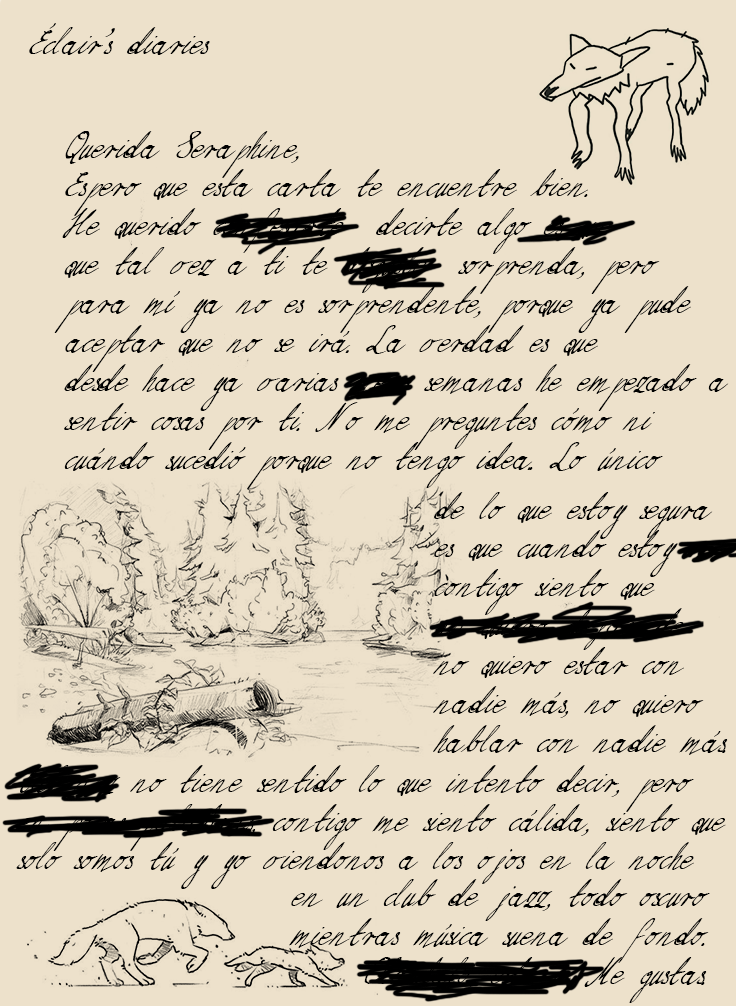 Éclair's diaries
Querida Seraphine,
Espero que esta carta te encuentre bien.
He querido decirte algo
que tal vez a ti te sorprenda, pero
para mí ya no es sorprendente, porque ya pude
aceptar que no se irá. La verdad es que
desde hace ya varias semanas he empezado a
sentir cosas por ti. No me preguntes cómo ni
cuándo sucedió porque no tengo idea. Lo único
de lo que estoy segura
es que cuando estoy
contigo siento que
no quiero estar con
nadie más, no quiero
hablar con nadie más
no tiene sentido lo que intento decir, pero
contigo me siento cálida, siento que
solo somos tú y yo viendonos a los ojos en la noche
en un club de jazz, todo oscuro
mientras música suena de fondo.
Me gustas